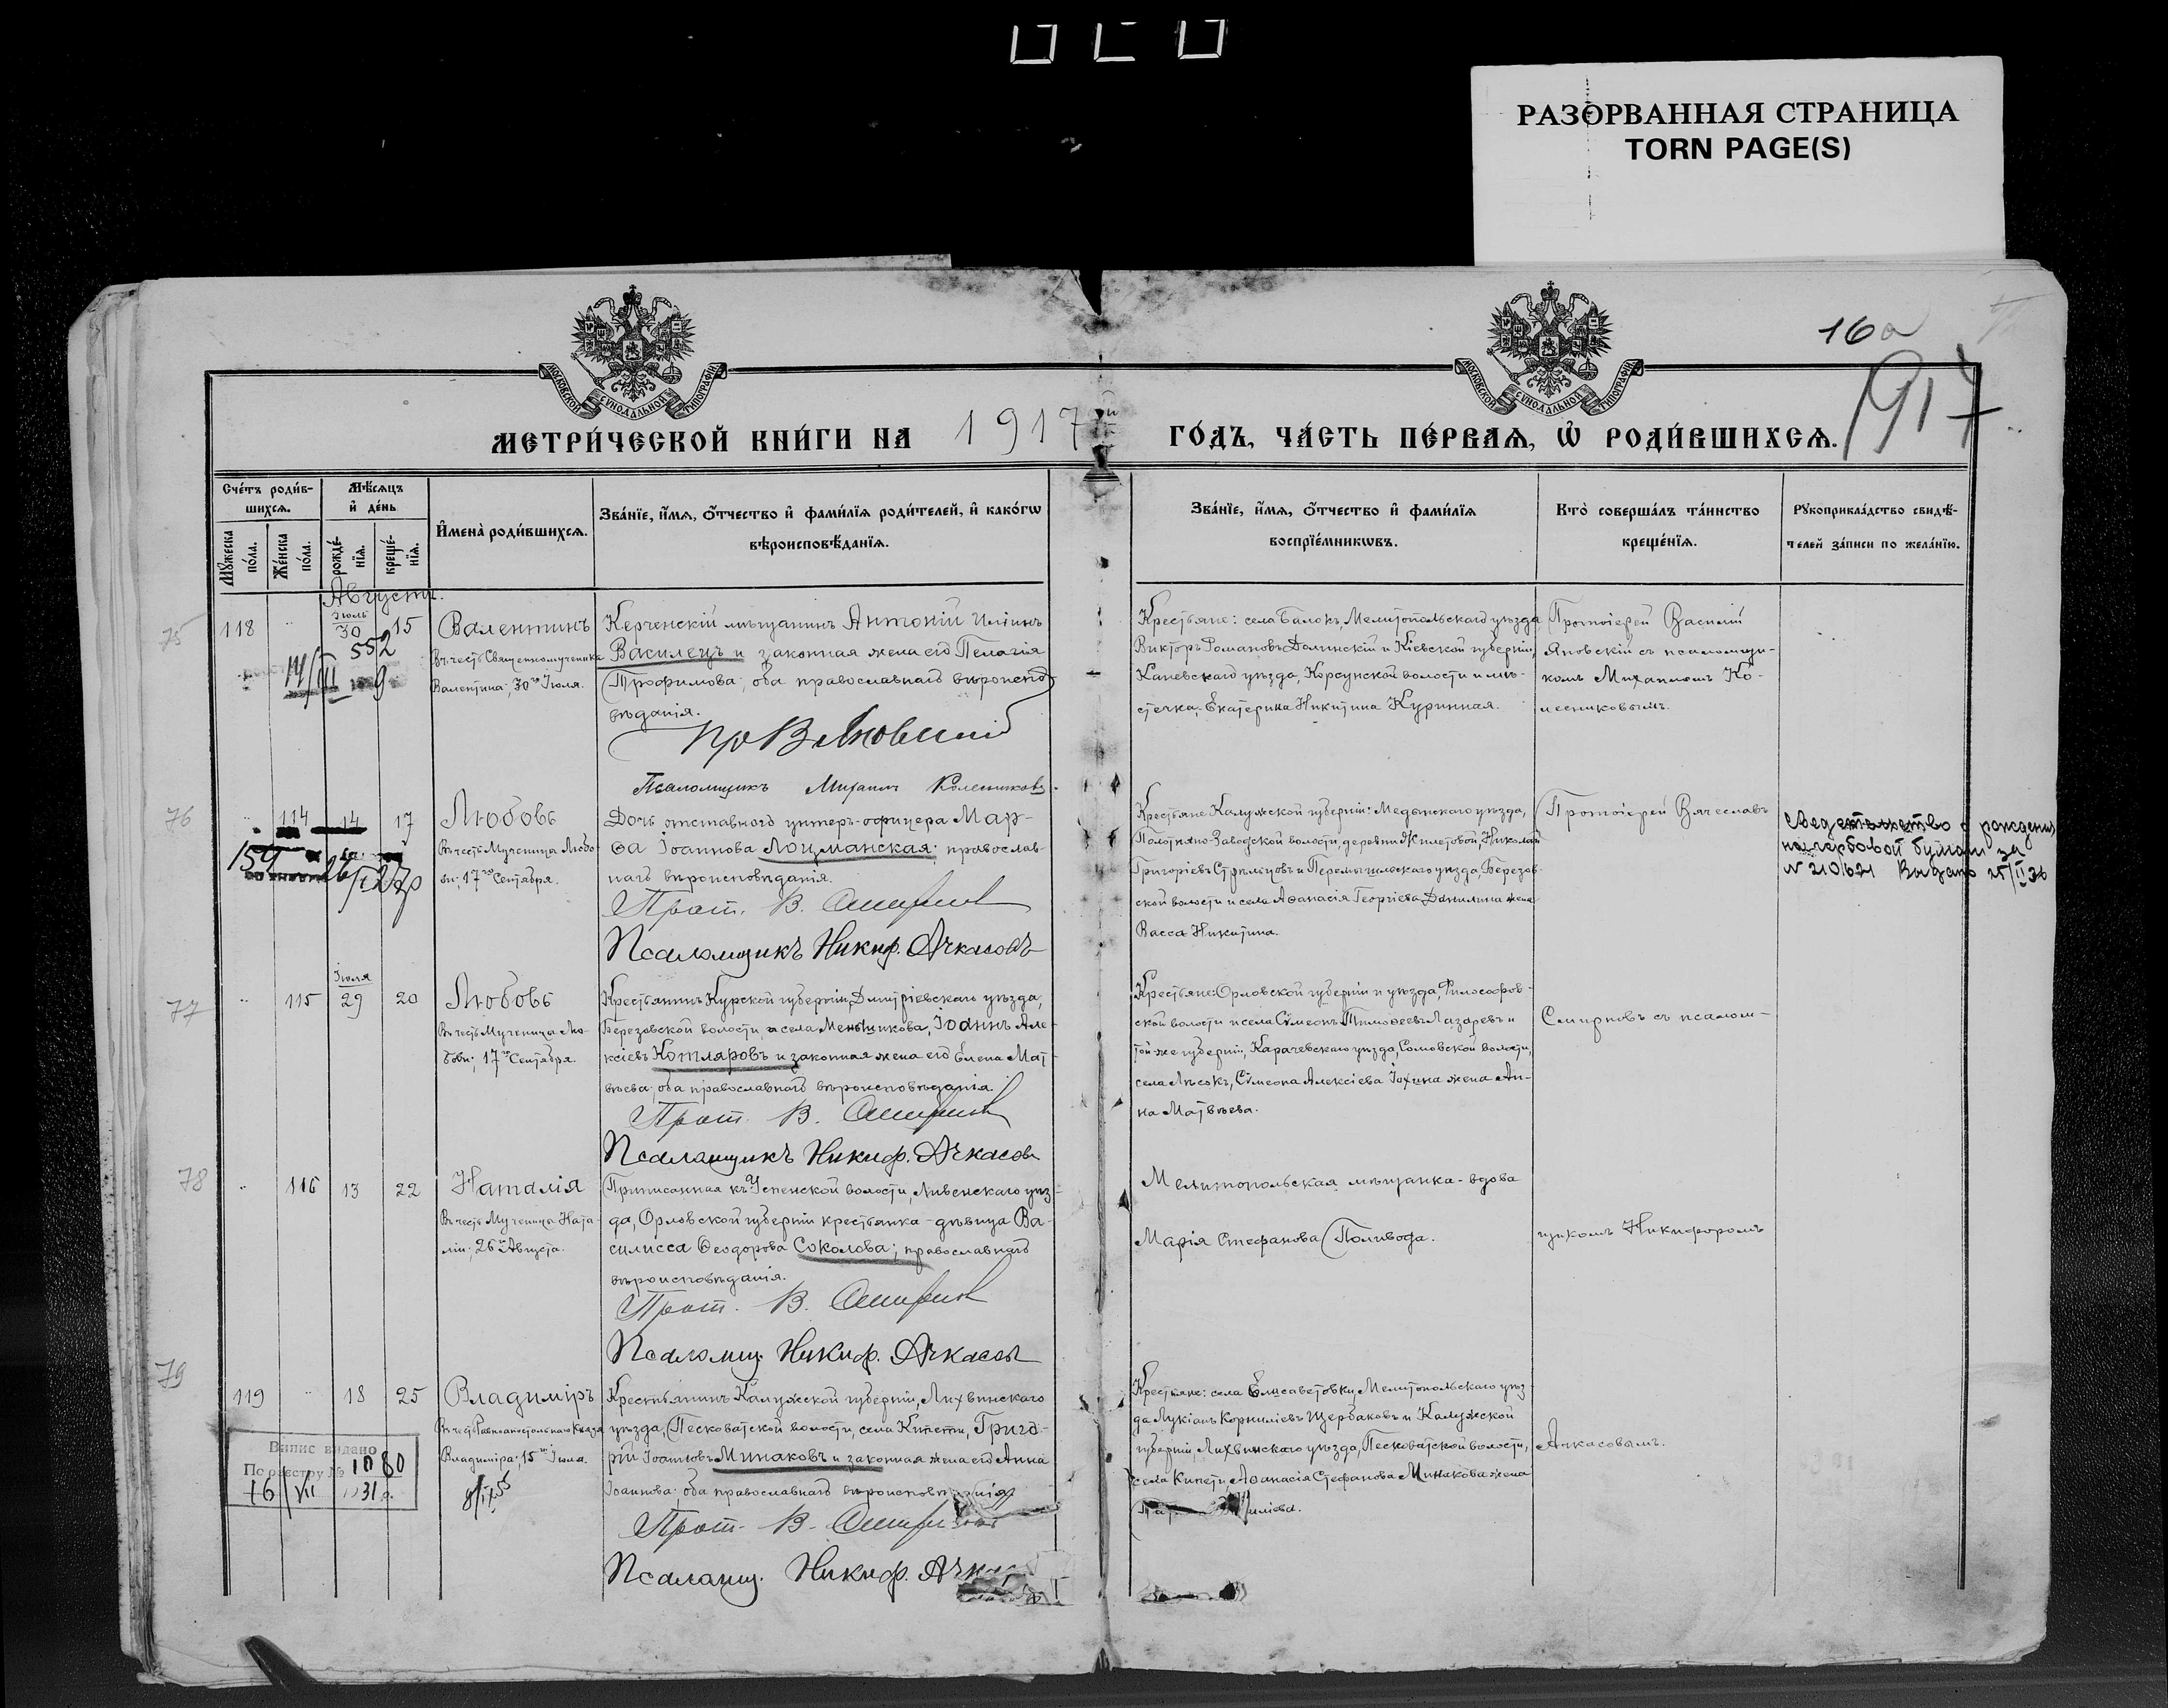 РАЗОРВАННАЯ СТРАНИЦА
TORN PAGE(S)
16а
1917
МОСКОВСКОЙ СѴНОДАЛЬНОЙ ТИПОГРАФІИ
МОСКОВСКОЙ СѴНОДАЛЬНОЙ ТИПОГРАФІИ
МЕТРИ́ЧЕСКОЙ КНИ́ГИ НА 1917й ГО́ДЪ, ЧА́СТЬ ПЕ́РВАЯ, Ѡ РОДИ́ВШИХСЯ.
Сче́тъ роди́в-
шихся.
Мꙋжеска по́ла.
Же́нска по́ла.
Мѣ́сяцъ
и де́нь
рожде́-
нїя.
креще́-
нїя.
Имена̀ роди́вшихся.
Зва́нїе, и́мя, о́тчество и фами́лїя роди́телей, и како́гѡ
вѣроисповѣ́данїя.
Зва́нїе, и́мя, о́тчество и фами́лїя
воспрїе́мникѡвъ.
Кто̀ соверша́лъ та́инство
креще́нїя.
Рꙋкоприкла́дство свидѣ́-
телей за́писи по жела́нїю.
Августъ.
75
118
Іюль
30
15
552
14/III 9
Валентинъ
Въ честь Священномученика
Валентина; 30го Іюля.
Керченскій мѣщанинъ Антоній Иліинъ
Василецъ и законная жена его Пелагія
Трофимова; оба православнаго вѣроиспо-
вѣданія.
Пр В Яновский
Псаломщикъ Михаилъ Колесниковъ.
Крестьяне: села Балокъ, Мелитопольскаго уѣзда
Викторъ Романовъ Долинскій и Кіевской губерніи,
Каневскаго уѣзда, Корсунской волости и мѣ-
стечка, Екатерина Никитина Куринная.
Протоіерей Василій
Яновскій съ псаломщи-
комъ Михаиломъ Ко-
лесниковымъ.
76
114
14
17
159
Любовь
Въ честь Мученицы Любо-
ви; 17го Сентября.
Дочь отставного унтеръ-офицера Мар-
ѳа Іоаннова Лоцманская; православ-
наго вѣроисповѣданія.
Прот. В. Смирнов
Псаломщикъ Никиф. Ачкасовъ
Крестьяне Калужской губерніи: Медынскаго уѣзда,
Полотняно-Заводской волости, деревни Жилетовой, Николай
Григоріевъ Стрѣльцовъ и Перемышльскаго уѣзда, Березов-
ской волости и села Аѳанасія Георгіева Данилина жена
Васса Никитина.
Протоіерей Вячеславъ
Сведетельство о рождении
на гербовой бумаги за
№ 210621 Выдано 15/II 36
77
115
Іюля
29
20
Любовь
Въ честь Мученицы Лю-
бови; 17го Сентября.
Крестьянинъ Курской губерніи, Дмитріевскаго уѣзда,
Березовской волости и села Меньшикова, Іоаннъ Але-
ксіевъ Котляровъ и законная жена его Елена Мат-
вѣева; оба православнаго вѣроисповѣданія
Прот. В. Смирнов
Псаломщикъ Никиф. Ачкасов
Крестьяне: Орловской губерніи и уѣзда, Философов-
ской волости и села Сѵмеонъ Тимоѳеевъ Лазаревъ и
той-же губерніи, Карачевскаго уѣзда, Сомовской волости,
села Лѣсокъ, Сѵмеона Алексіева Іохина жена Ан-
на Матвѣева.
Смирновъ съ псалом-
78
116
13
22
Наталія
Въ честь Мученицы Ната-
ліи; 26го Августа.
Приписанная къ Успенской волости, Ливенскаго уѣз-
да, Орловской губерніи крестьянка-дѣвица Ва-
силисса Ѳеодорова Соколова; православнаго
вѣроисповѣданія.
Прот. В. Смирнов
Псаломщ. Никиф. Ачкасов
Мелитопольская мѣщанка-вдова
Марія Стефанова Поливода.
щикомъ Никифоромъ
79
119
18
25
Владиміръ
Въ честь Равноапостольнаго Князя
Владиміра; 15го Іюля.
8/IX 55
Випис видано
По реєстру № 1080
16/VII 1931 р.
Крестьянинъ Калужской губерніи, Лихвинскаго
уѣзда, Песковатской волости, села Кипети, Григо-
рій Іоанновъ Минаковъ и законная жена его Анна
Іоаннова; оба православнаго
Прот. В.
Псаломщ. Никиф.
Крестьяне: села Елисаветовки, Мелитопольскаго уѣз-
да Лукіанъ Корниліевъ Щербаковъ и Калужской
губерніи, Лихвинскаго уѣзда, Песковатской волости,
села Кипети, Аѳанасія Стефанова Минакова жена
Ачкасовымъ.